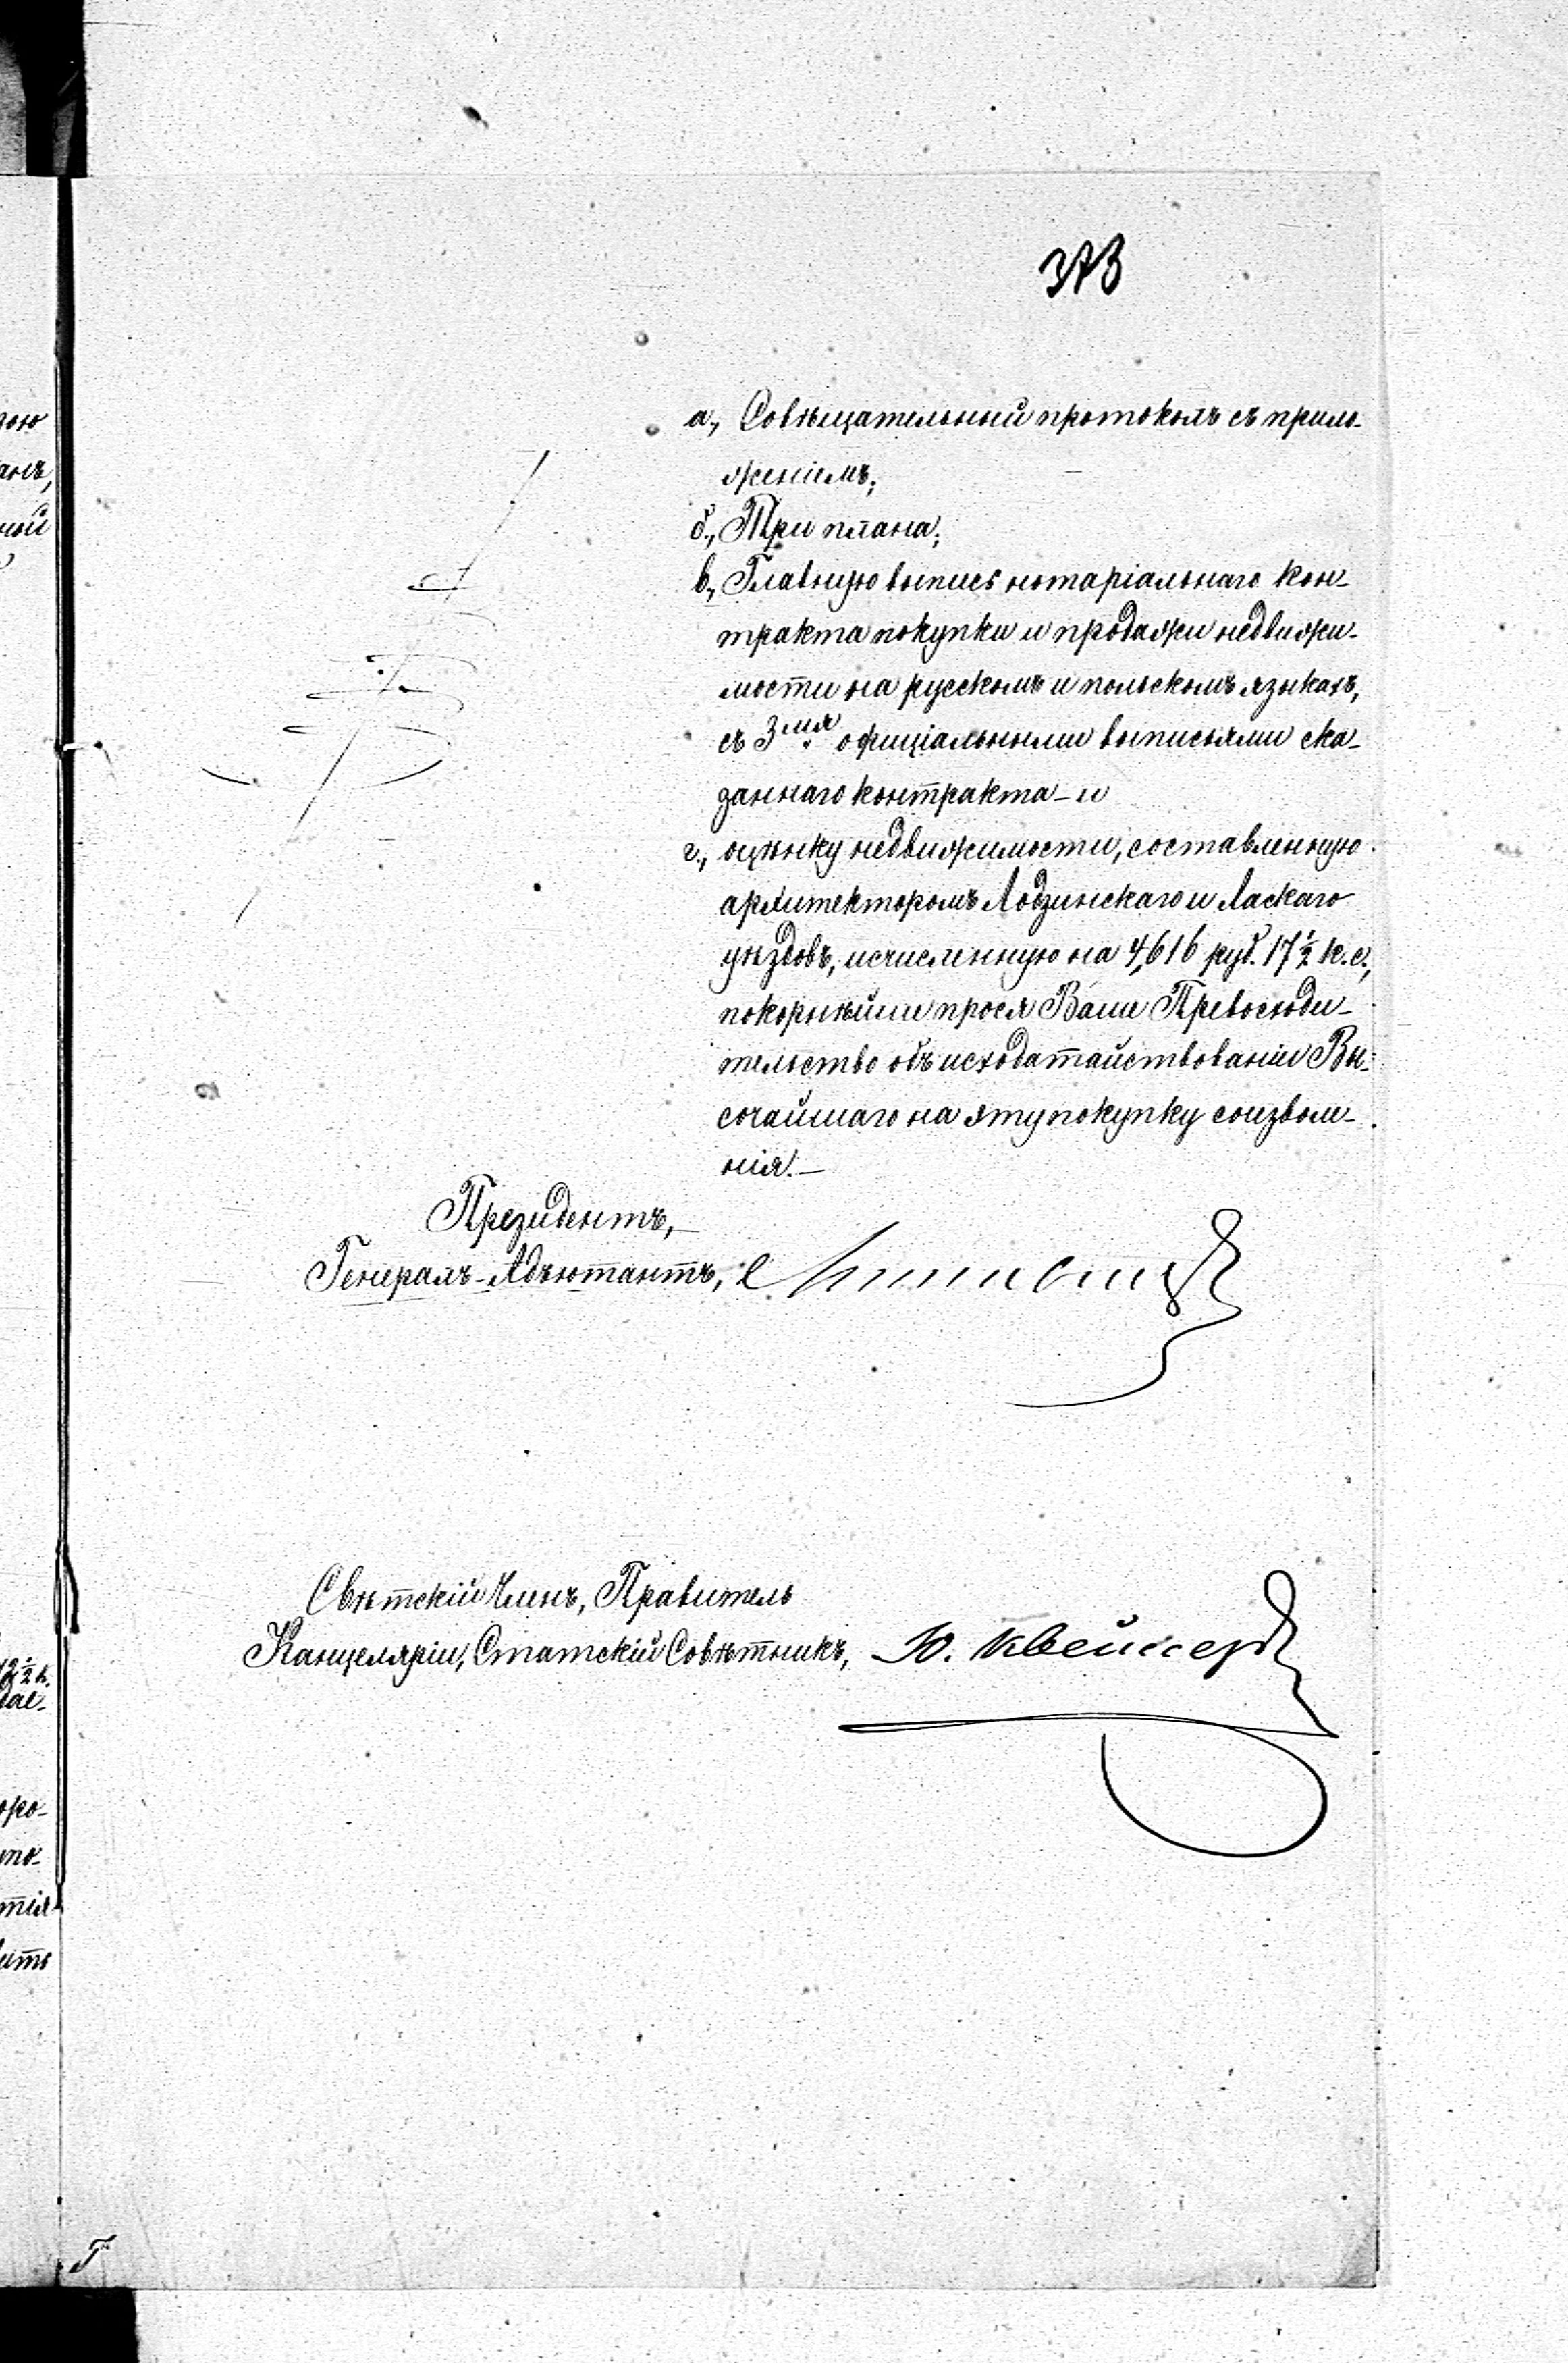 373
а., Совѣщательный протоколъ съ прило-
женіемъ;
б., Три плана;
в., Главную выпись нотаріальнаго кон-
тракта покупки и продажи недвижи-
мости на русскомъ и польскомъ языкахъ,
съ 3мя офиціальными выписями ска-
заннаго контракта – и
г., оцѣнку недвижимости, составленную
архитекторомъ Лодзинскаго и Ласкаго
уѣздовъ, исчисленную на 4,616 руб. 17½ к. с.,
покорнѣйше прося Ваше Превосходи-
тельство объ исходатайствованіи Вы-
сочайшаго на эту покупку соизволе-
нія. –
Президентъ,
Генералъ-Адъютантъ,
Свѣтскій Членъ, Правитель
Канцеляріи, Статскій Совѣтникъ, Ю.